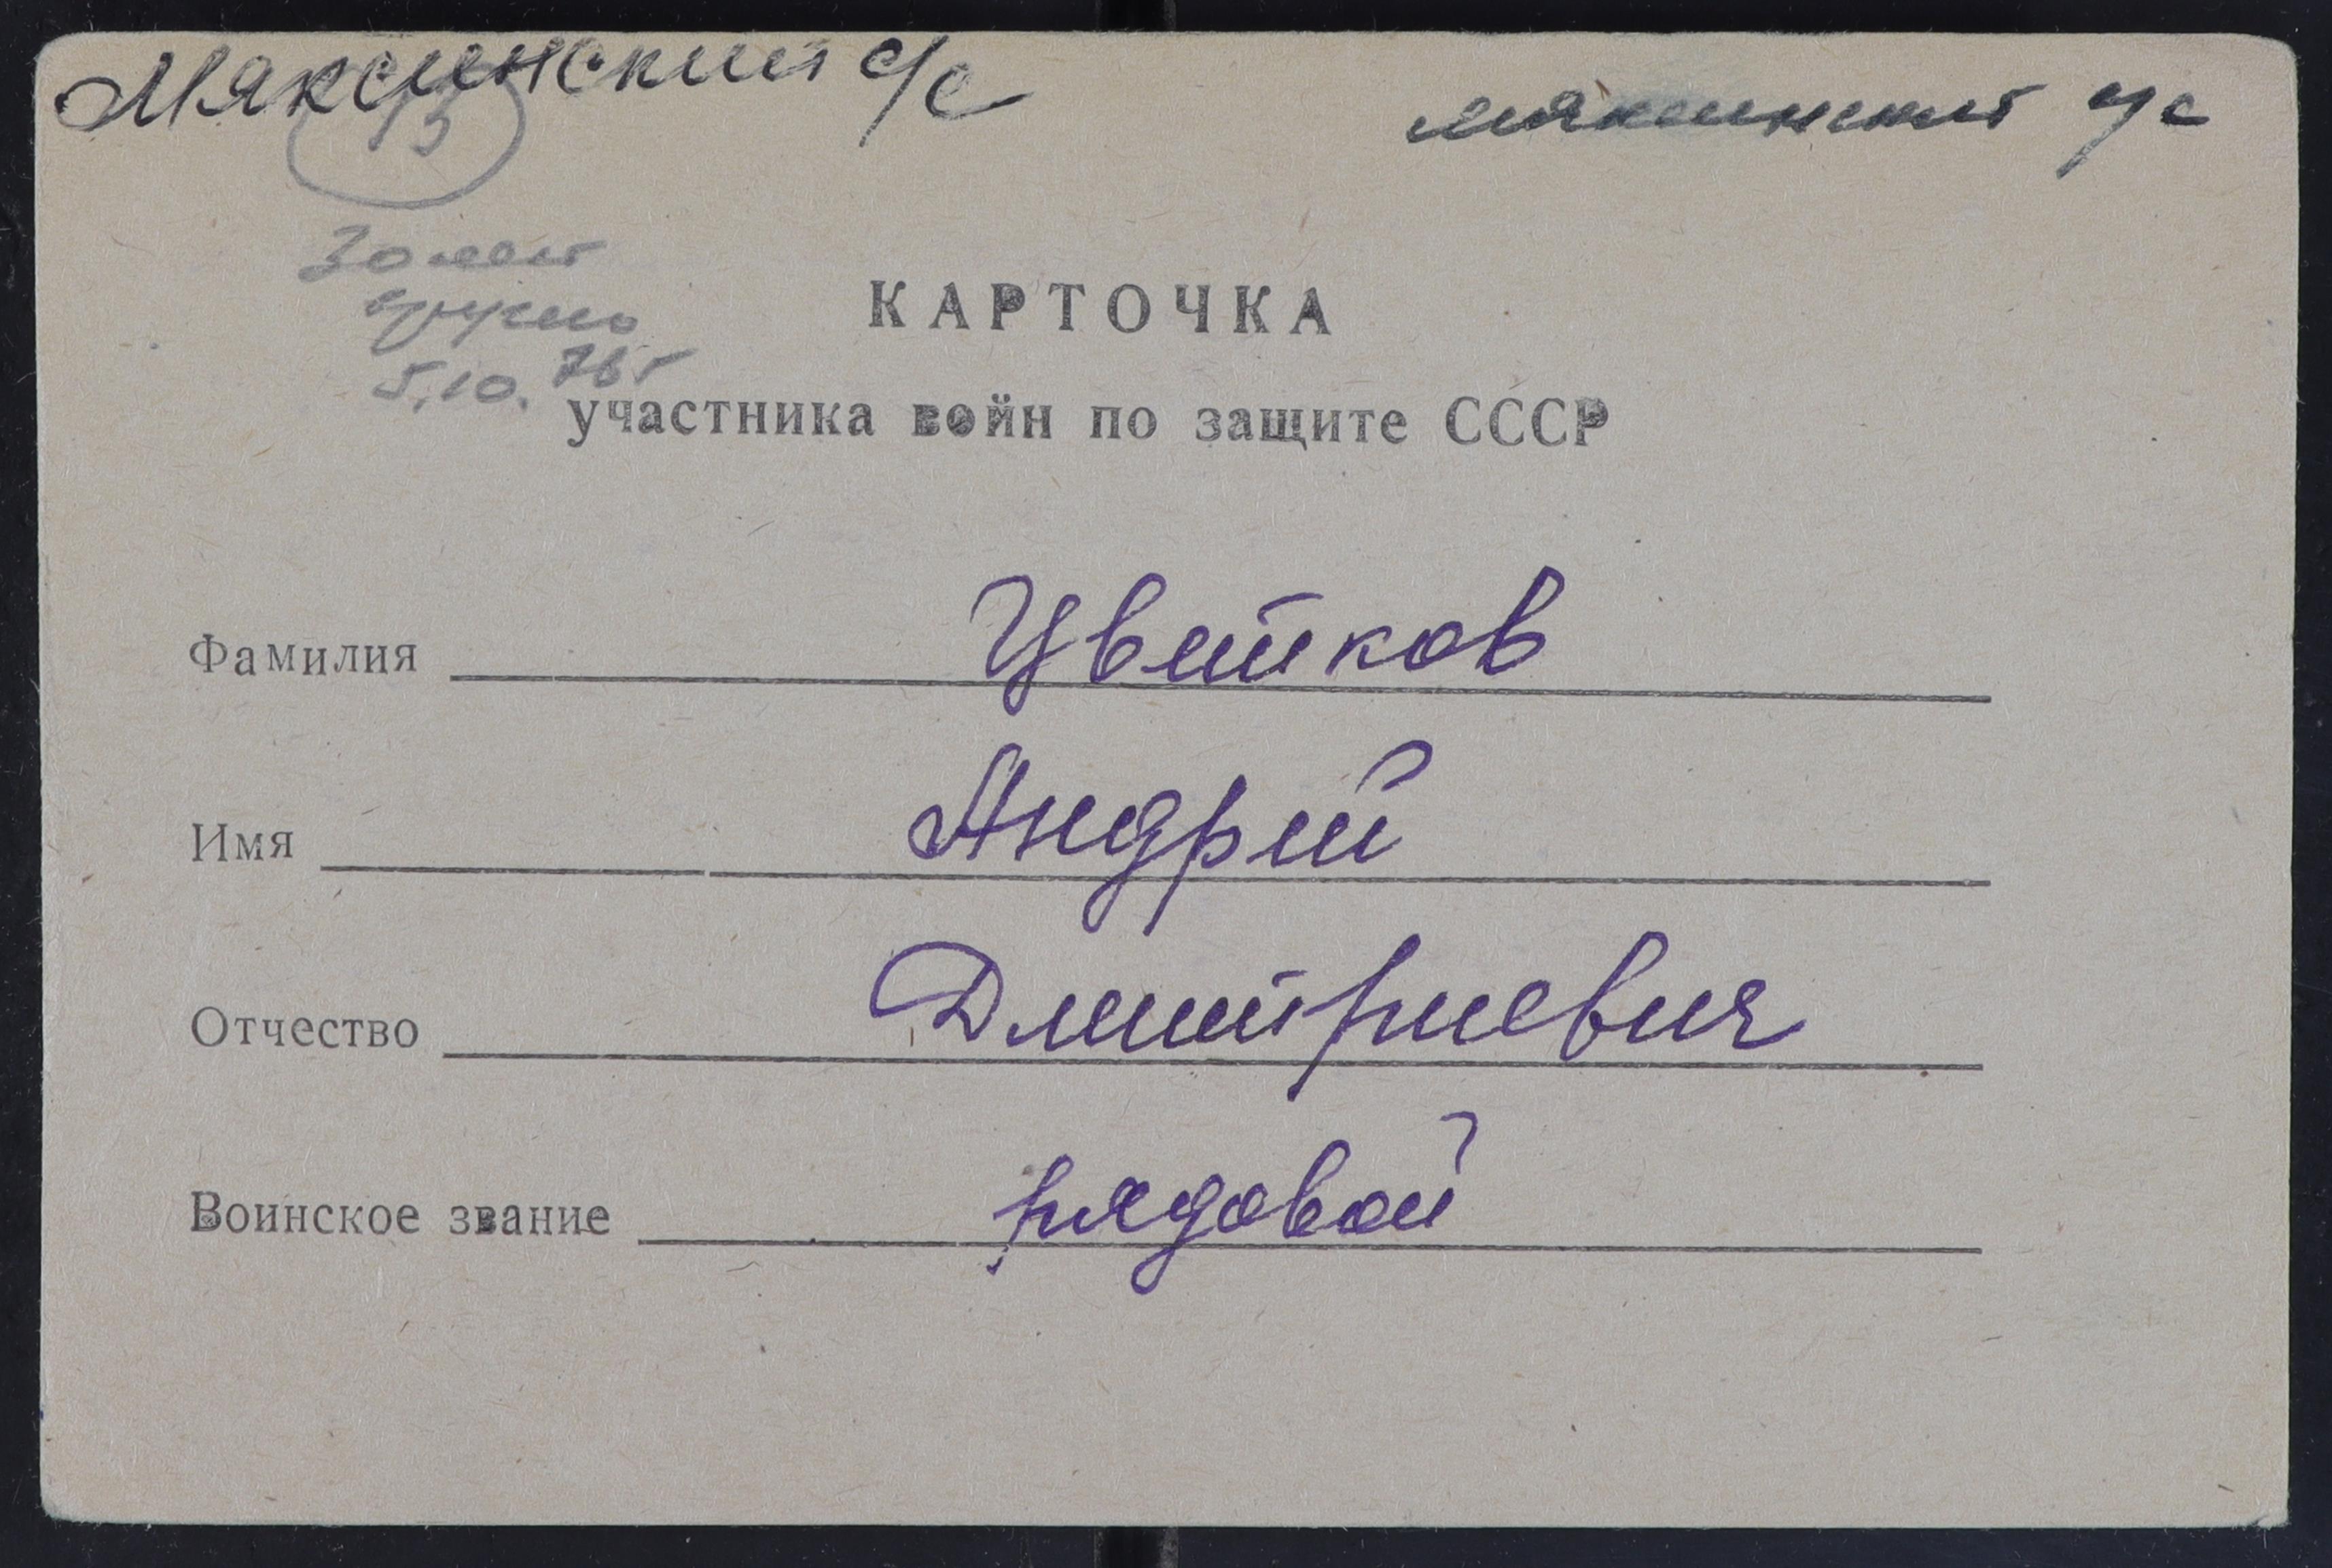 Мяксинский с/с
мяксинский с/с
15
30 лет
вручено
5.10. 76 г
КАРТОЧКА
участника войн по защите СССР
Фамилия Цветков
Имя Андрей
Отчество Дмитриевич
Воинское звание рядовой